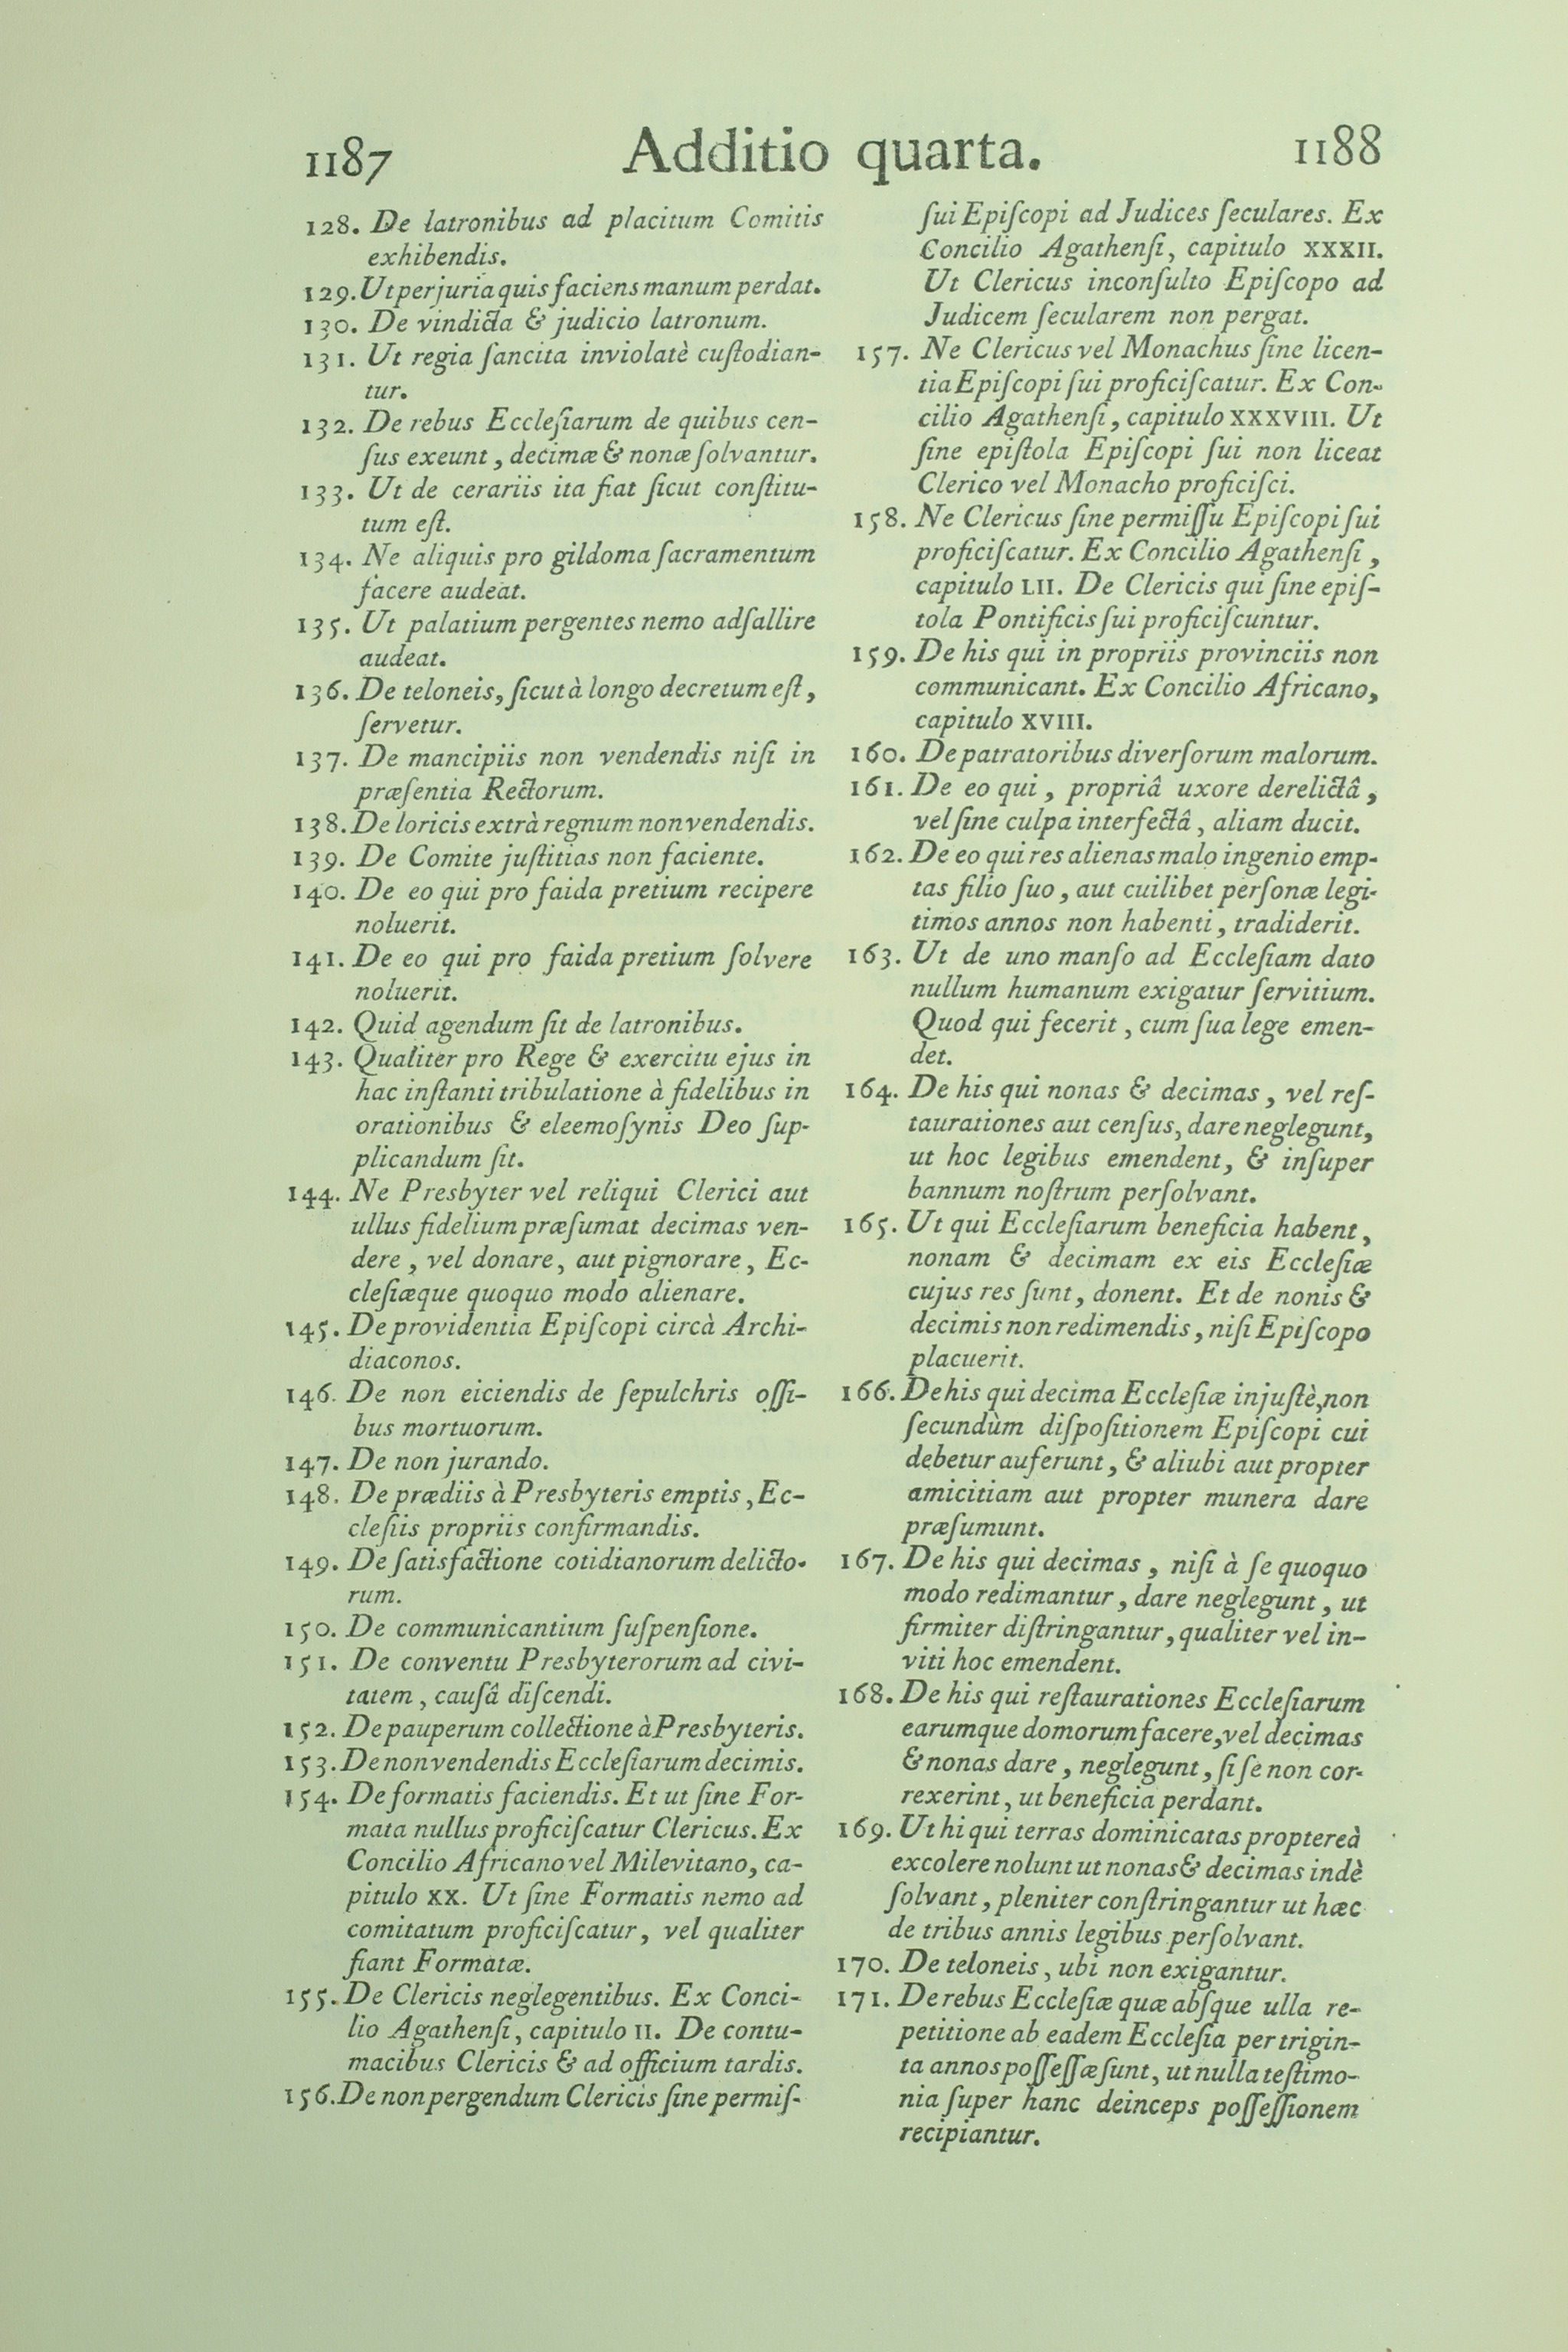 1187
Additio quarta.
1188
128. De latronibus ad placitum Comitis
exhibendis.
129. Ut perjuria quis faciens manum perdat.
130. De vindicta & judicio latronum.
131. Ut regia ſancita inviolatè cuſtodian-
tur.
132. De rebus Eccleſiarum de quibus cen-
ſus exeunt, decimæ & nonæ ſolvantur.
133. Ut de cerariis ita fiat ſicut conſtitu-
tum eſt.
134. Ne aliquis pro gildoma ſacramentum
facere audeat.
135. Ut palatium pergentes nemo adſallire
audeat.
136. De teloneis, ſicut à longo decretum eſt,
ſervetur.
137. De mancipiis non vendendis niſi in
præſentia Rectorum.
138. De loricis extrà regnum non vendendis.
139. De Comite juſtitias non faciente.
140. De eo qui pro faida pretium recipere
noluerit.
141. De eo qui pro faida pretium ſolvere
noluerit.
142. Quid agendum ſit de latronibus.
143. Qualiter pro Rege & exercitu ejus in
hac inſtanti tribulatione à fidelibus in
orationibus & eleemoſynis Deo ſup-
plicandum ſit.
144. Ne Presbyter vel reliqui Clerici aut
ullus fidelium præſumat decimas ven-
dere, vel donare, aut pignorare, Ec-
cleſiæque quoquo modo alienare.
145. De providentia Epiſcopi circà Archi-
diaconos.
146. De non eiciendis de ſepulchris oſſi-
bus mortuorum.
147. De non jurando.
148. De prædiis à Presbyteris emptis, Ec-
cleſiis propriis confirmandis.
149. De ſatisfactione cotidianorum delicto-
rum.
150. De communicantium ſuſpenſione.
151. De conventu Presbyterorum ad civi-
tatem, cauſâ diſcendi.
152. De pauperum collectione à Presbyteris.
153. De non vendendis Eccleſiarum decimis.
154. De formatis faciendis. Et ut ſine For-
mata nullus proficiſcatur Clericus. Ex
Concilio Africano vel Milevitano, ca-
pitulo XX. Ut ſine Formatis nemo ad
comitatum proficiſcatur, vel qualiter
fiant Formatæ.
155. De Clericis neglegentibus. Ex Conci-
lio Agathenſi, capitulo II. De contu-
macibus Clericis & ad officium tardis.
156. De non pergendum Clericis ſine permiſ-
ſui Epiſcopi ad Judices ſeculares. Ex
Concilio Agathenſi, capitulo XXXII.
Ut Clericus inconſulto Epiſcopo ad
Judicem ſecularem non pergat.
157. Ne Clericus vel Monachus ſine licen-
tia Epiſcopi ſui proficiſcatur. Ex Con-
cilio Agathenſi, capitulo XXXVIII. Ut
ſine epiſtola Epiſcopi ſui non liceat
Clerico vel Monacho proficiſci.
158. Ne Clericus ſine permiſſu Epiſcopi ſui
proficiſcatur. Ex Concilio Agathenſi,
capitulo LII. De Clericis qui ſine epiſ-
tola Pontificis ſui proficiſcuntur.
159. De his qui in propriis provinciis non
communicant. Ex Concilio Africano,
capitulo XVIII.
160. De patratoribus diverſorum malorum.
161. De eo qui, propriâ uxore derelictâ,
vel ſine culpa interfectâ, aliam ducit.
162. De eo qui res alienas malo ingenio emp-
tas filio ſuo, aut cuilibet perſonæ legi-
timos annos non habenti, tradiderit.
163. Ut de uno manſo ad Eccleſiam dato
nullum humanum exigatur ſervitium.
Quod qui fecerit, cum ſua lege emen-
det.
164. De his qui nonas & decimas, vel reſ-
taurationes aut cenſus, dare neglegunt,
ut hoc legibus emendent, & inſuper
bannum noſtrum perſolvant.
165. Ut qui Eccleſiarum beneficia habent,
nonam & decimam ex eis Eccleſiæ
cujus res ſunt, donent. Et de nonis &
decimis non redimendis, niſi Epiſcopo
placuerit.
166. De his qui decima Eccleſiæ injuſtè, non
ſecundùm diſpoſitionem Epiſcopi cui
debetur auferunt, & aliubi aut propter
amicitiam aut propter munera dare
præſumunt.
167. De his qui decimas, niſi à ſe quoquo
modo redimantur, dare neglegunt, ut
firmiter diſtringantur, qualiter vel in-
viti hoc emendent.
168. De his qui reſtaurationes Eccleſiarum
earumque domorum facere, vel decimas
& nonas dare, neglegunt, ſi ſe non cor-
rexerint, ut beneficia perdant.
169. Ut hi qui terras dominicatas proptereà
excolere nolunt ut nonas & decimas indè
ſolvant, pleniter conſtringantur ut hæc
de tribus annis legibus perſolvant.
170. De teloneis, ubi non exigantur.
171. De rebus Eccleſiæ quæ abſque ulla re-
petitione ab eadem Eccleſia per trigin-
ta annos poſſeſſæ ſunt, ut nulla teſtimo-
nia ſuper hanc deinceps poſſeſſionem
recipiantur.